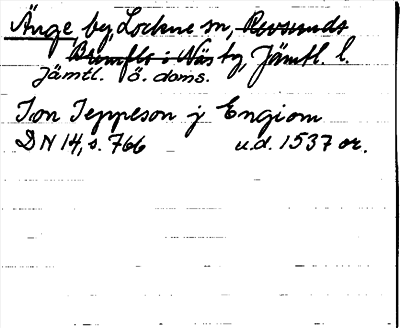 Änge, by Lockne sn, Revsunds
Brunflo i Näs tg, Jämtl. l.
Jämtl. ö. doms.
Jon Jeppeson j Engiom
DN 14, s. 766 u.d. 1537 or.